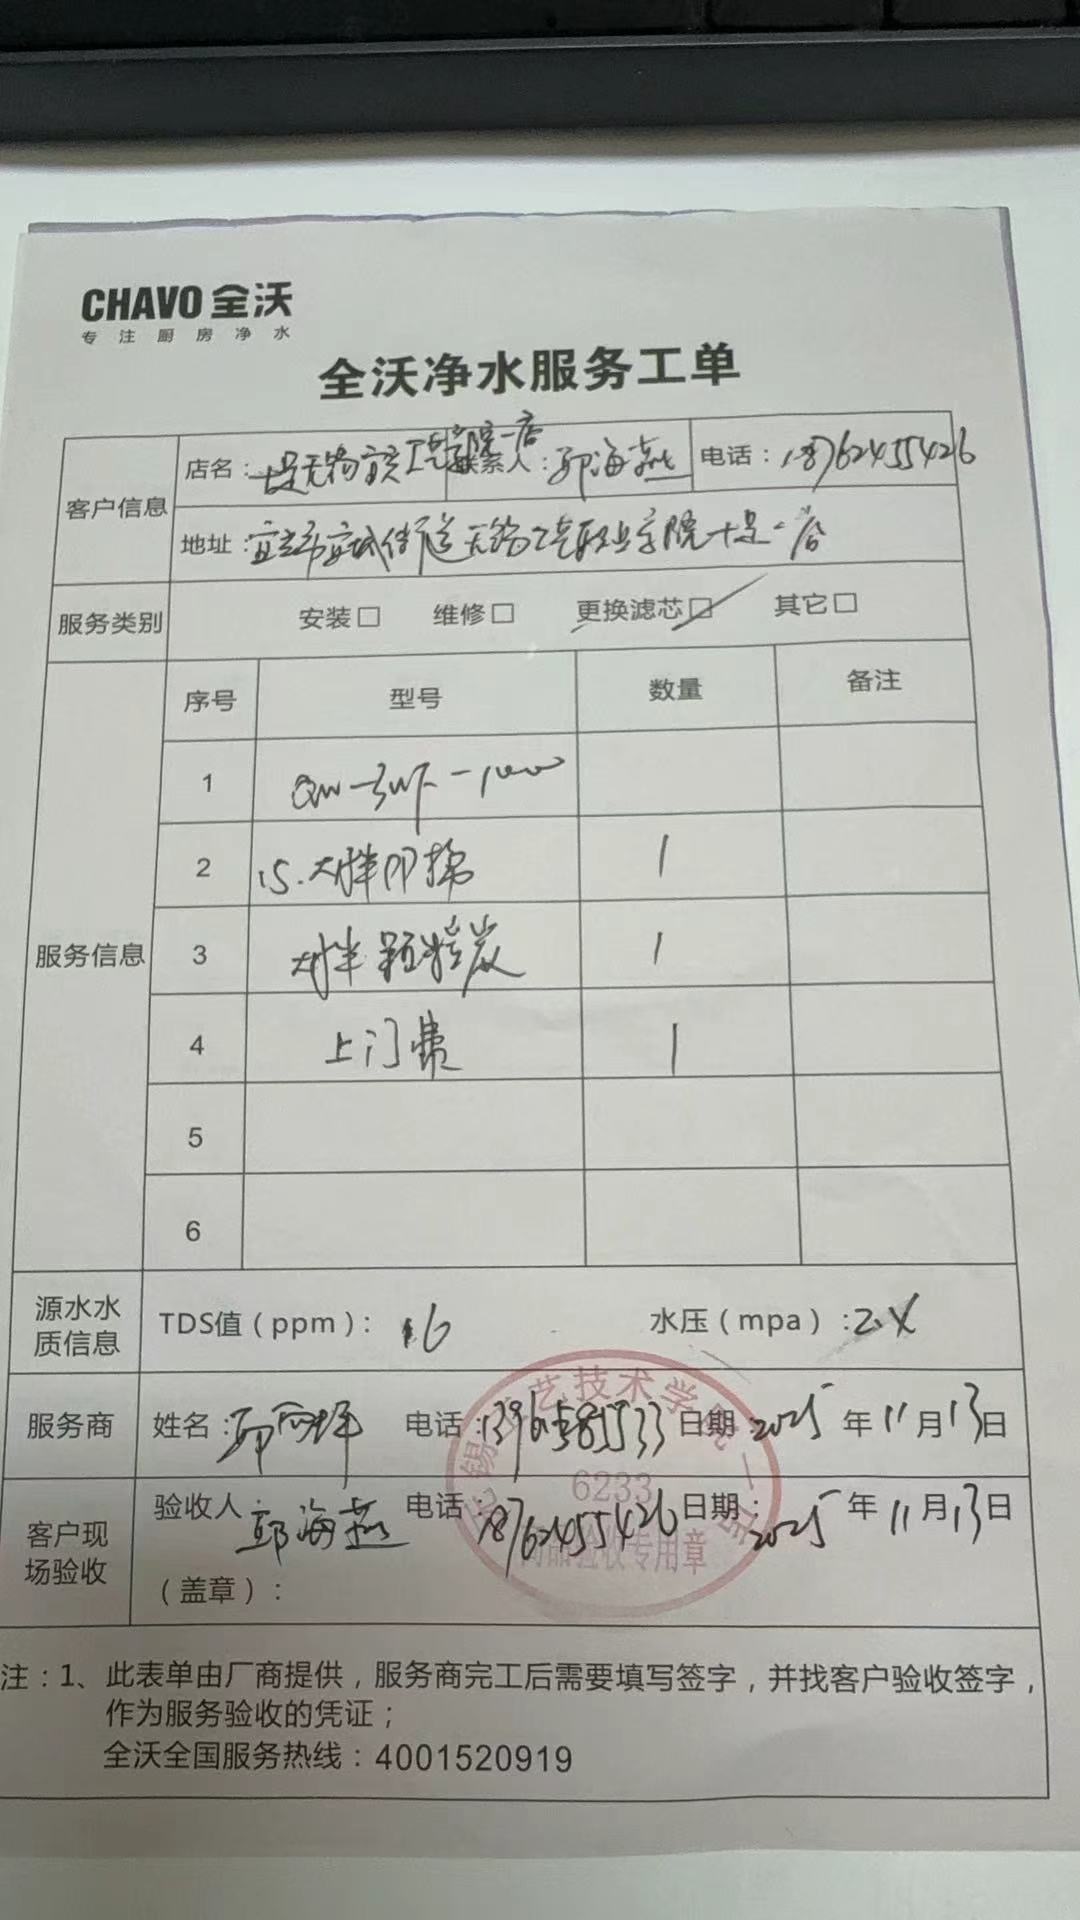 CHAVO 全沃
专注厨房净水
全沃净水服务工单
客户信息 店名: 联系人:郭海燕 电话:18762455426
地址:宜兴市宜城街道无锡工艺职业学院十足一店
服务类别 安装□ 维修□ 更换滤芯□ 其它□
服务信息 序号 型号 数量 备注
1 QW-3WF-1000
2 15.大胖PP棉 1
3 大胖颗粒炭 1
4 上门费 1
5
6
源水水质信息 TDS值(ppm): 水压(mpa):
服务商 姓名: 电话: 日期:2025年11月13日
客户现场验收 验收人:郭海燕 电话:18762455426 日期:2025年11月13日
(盖章):
艺技术学
6233
验收专用章
注:1、此表单由厂商提供,服务商完工后需要填写签字,并找客户验收签字,
作为服务验收的凭证;
全沃全国服务热线:4001520919